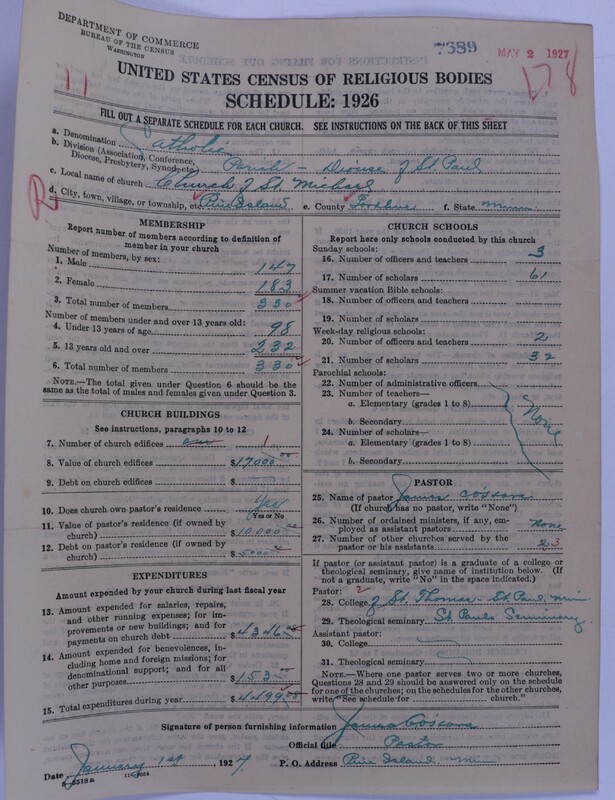 DEPARTMENT OF COMMERCE
BUREAU OF THE CENSUS
WASHINGTON
7589
MAY 2 1927
11
178
UNITED STATES CENSUS OF RELIGIOUS BODIES
SCHEDULE: 1926
FILL OUT A SEPARATE SCHEDULE FOR EACH CHURCH. SEE INSTRUCTIONS ON THE BACK OF THIS SHEET
a. Denomination Catholic
b. Division (Association, Conference, Diocese, Presbytery, Synod, etc.) Parish - Diocese of St. Paul
c. Local name of church Church of St. Michael
R
d. City, town, village, or township, etc. Pine Island e. County Goodhue f. State Minn.
MEMBERSHIP
Report number of members according to definition of member in your church
Number of members, by sex:
1. Male 147
2. Female 183
3. Total number of members 330
Number of members under and over 13 years old:
4. Under 13 years of age 98
5. 13 years old and over 232
6. Total number of members 330
NOTE.—The total given under Question 6 should be the same as the total of males and females given under Question 3.
CHURCH BUILDINGS
See instructions, paragraphs 10 to 12
7. Number of church edifices one 1
8. Value of church edifices $17000.00
9. Debt on church edifices $
10. Does church own pastor's residence Yes
(Yes or No)
11. Value of pastor's residence (if owned by church) $10000.00
12. Debt on pastor's residence (if owned by church) $5000.00
EXPENDITURES
Amount expended by your church during last fiscal year
13. Amount expended for salaries, repairs, and other running expenses; for improvements or new buildings; and for payments on church debt $4346.00
14. Amount expended for benevolences, including home and foreign missions; for denominational support; and for all other purposes $153.00
15. Total expenditures during year $4499.00
CHURCH SCHOOLS
Report here only schools conducted by this church
Sunday schools:
16. Number of officers and teachers 3
17. Number of scholars 61
Summer vacation Bible schools:
18. Number of officers and teachers
19. Number of scholars
Week-day religious schools:
20. Number of officers and teachers 2
21. Number of scholars 32
Parochial schools:
22. Number of administrative officers
23. Number of teachers—
a. Elementary (grades 1 to 8)
b. Secondary
None
24. Number of scholars—
a. Elementary (grades 1 to 8)
b. Secondary
PASTOR
25. Name of pastor James
(If church has no pastor, write "None")
26. Number of ordained ministers, if any, employed as assistant pastors None
27. Number of other churches served by the pastor or his assistants 2
If pastor (or assistant pastor) is a graduate of a college or theological seminary, give name of institution below. (If not a graduate, write "No" in the space indicated.)
Pastor: 2
28. College of St. Thomas - St. Paul, Minn
29. Theological seminary St Pauls Seminary
Assistant pastor:
30. College
31. Theological seminary
NOTE.—Where one pastor serves two or more churches, Questions 28 and 29 should be answered only on the schedule for one of the churches; on the schedules for the other churches, write "See schedule for church."
Signature of person furnishing information James
Official title Pastor
Date January 1st, 1927 P. O. Address Pine Island, Minn